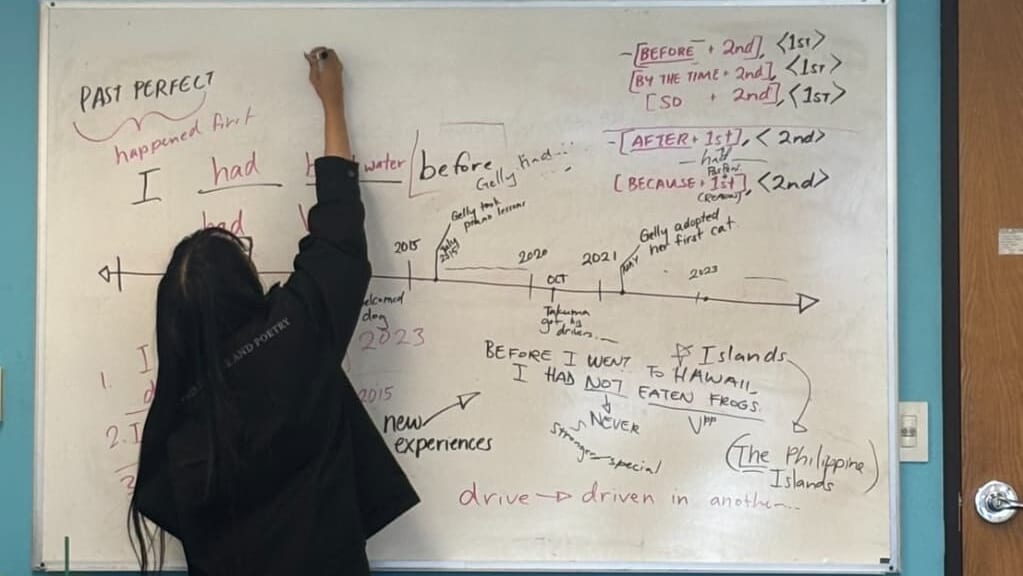 PAST PERFECT
happened first
I had water before
Gelly had...
had
- [BEFORE + 2nd], <1st>
[BY THE TIME + 2nd], <1ST>
[SO + 2nd], <1ST>
- [AFTER + 1st], < 2nd>
had
[BECAUSE + 1st], <2nd>
(REASON)
2015
July 2015
Gelly took piano lessons
2020
OCT
2021
MAY
Gelly adopted
her first cat.
2023
dog
Takuma
got his
driver...
I
2023
1.
2015
2. I
3
new
experiences
BEFORE I WENT TO HAWAII,
I HAD NOT EATEN FROGS.
NEVER
Vpp
stronger
special
Islands
(The Philippine
Islands)
drive → driven in another...
LAND POETRY